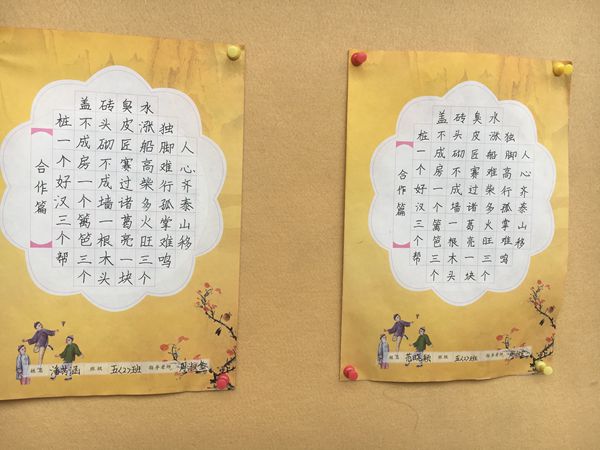 合作篇
人心齐泰山移
独脚难行孤掌难鸣
水涨船高柴多火旺三个
臭皮匠赛过诸葛亮一块
砖头砌不成墙一根木头
盖不成房一个篱笆三个
桩一个好汉三个帮
班级 五(2)班 指导老师
合作篇
人心齐泰山移
独脚高行孤掌难鸣
水涨船难柴多火旺三个
臭皮匠赛过诸葛亮一块
砖头砌不成墙一根木头
盖不成房一个篱笆三个
桩一个好汉三个帮
班级 五(2)班 指导老师